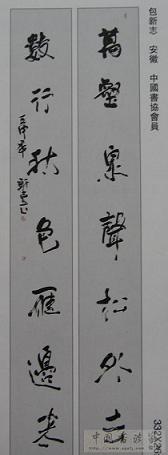 包新志　安徽　中國書協會員
萬壑泉聲松外去
數行秋色雁邊來
壬申年
新志
332X26
中国书法